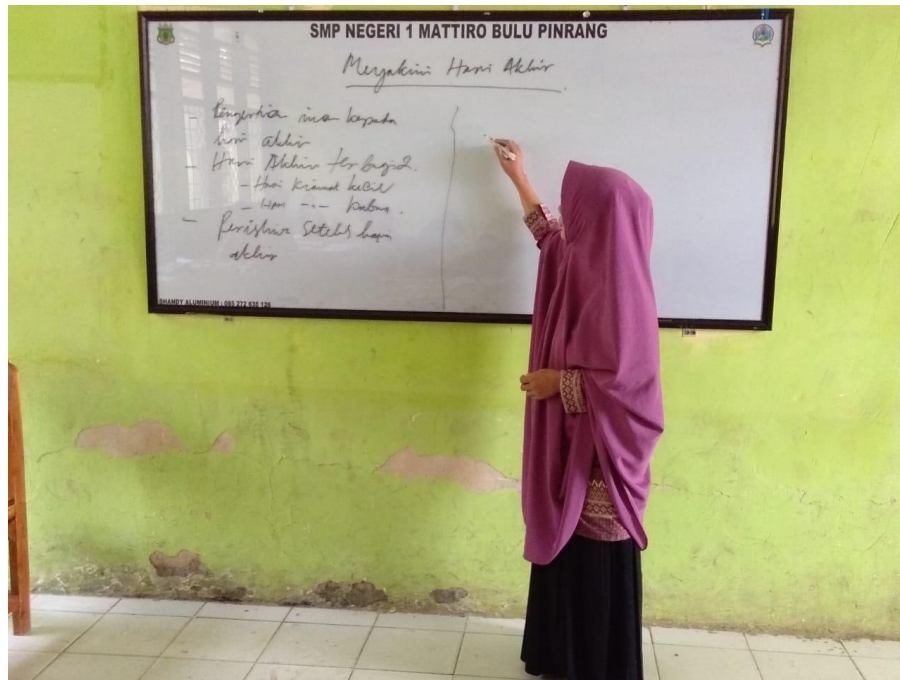 SMP NEGERI 1 MATTIRO BULU PINRANG
Meyakini Hari Akhir
- Pengertian iman kepada
hari akhir
- Hari Akhir terbagi 2.
- Hari Kiamat kecil
- Hari ---
- Peristiwa setelah hari
akhir
SHANDY ALUMINIUM : 085 272 635 126